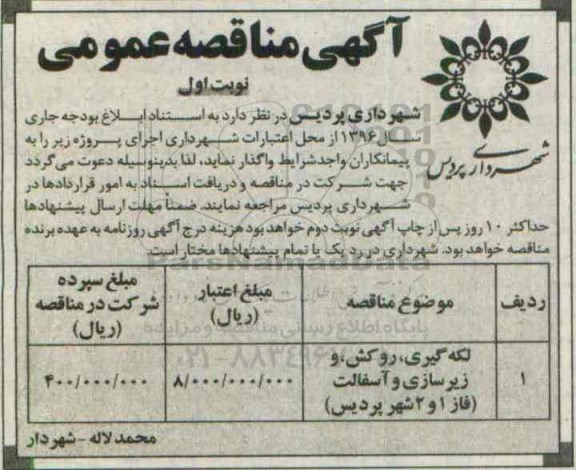 آگهی مناقصه عمومی
نوبت اول
شهرداری پردیس
شهرداری پردیس در نظر دارد به استناد ابلاغ بودجه جاری
سال ۱۳۹۶ از محل اعتبارات شهرداری اجرای پروژه زیر را به
پیمانکاران واجد شرایط واگذار نماید، لذا بدینوسیله دعوت می گردد
جهت شرکت در مناقصه و دریافت اسناد به امور قراردادها در
شهرداری پردیس مراجعه نمایند. ضمناً مهلت ارسال پیشنهادها
حداکثر ۱۰ روز پس از چاپ آگهی نوبت دوم خواهد بود هزینه درج آگهی روزنامه به عهده برنده
مناقصه خواهد بود. شهرداری در رد یک یا تمام پیشنهادها مختار است.
ParsNamadData
ردیف
موضوع مناقصه
مبلغ اعتبار
(ریال)
مبلغ سپرده
شرکت در مناقصه
(ریال)
پایگاه اطلاع رسانی مناقصه و مزایده
۱
لکه گیری، روکش، و
زیرسازی و آسفالت
(فاز ۱ و ۲ شهر پردیس)
۸/۰۰۰/۰۰۰/۰۰۰
۴۰۰/۰۰۰/۰۰۰
محمد لاله - شهردار